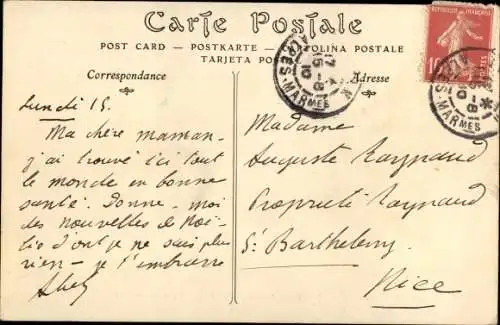 Carte Postale
POST CARD — POSTKARTE — CARTOLINA POSTALE
TARJETA POS
Correspondance
Adresse
REPUBLIQUE FRANÇAISE
10
POSTES
17
15-8
10
ALPES-MARMES
15-8
10
MARMES
Lundi 15.
Ma chère maman -
j'ai trouvé ici tout
le monde en bonne
santé. Donne-moi
des nouvelles de
d'ont je ne sais plus
rien - je t'embrasse
Madame
Auguste Raynaud
Propriété Raynaud
St Barthelemy
Nice